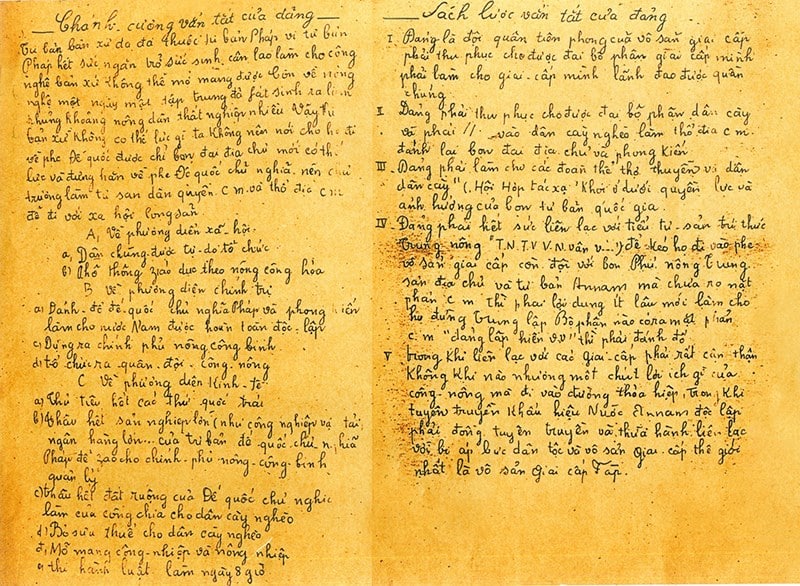 Chanh cương vắn tắt của đảng
Tư bản bản xứ do đã thuộc tư bản Pháp vì tư bản
Pháp hết sức ngăn trở sức sinh sản làm cho công
nghệ bản xứ không thể mở mang được Còn về nông
nghệ một ngày một tập trung đã fát sinh ra lắm
khủng khoảng nông dân thất nghiệp nhiều Vậy tư
bản xứ không có thế lực gì ta không nên nói cho họ đi
về phe Đế quốc được chỉ bọn đại địa chủ mới có thế
lực và đứng hẳn về phe Đế quốc chủ nghĩa. nên chủ
trương làm tư sản dân quyền. C m. và thổ địa C m
để đi với xã hội cộng sản
A, Về phương diện xã hội
a, Dân chúng được tự do tổ chức
b) Phổ thông giáo dục theo nông công hóa
B về phương diện chính trị
a) Đánh đổ đế quốc chủ nghĩa Pháp và phong kiến
làm cho nước Nam được hoàn toàn độc lập
c) Dựng ra chính phủ nông công binh
d) tổ chức ra quân đội công nông
C Về phương diện kinh tế
a) Thủ tiêu hết các thứ quốc trái
b) thâu hết sản nghiệp lớn (như công nghiệp vận tải
ngân hàng lớn... của tư bản đế quốc chủ nghĩa
Pháp để giao cho chính phủ nông - công - binh
quản lý
c) thâu hết đất ruộng của Đế quốc chủ nghĩa
làm của công chia cho dân cày nghèo
d) Bỏ sưu thuế cho dân cày nghèo
đ, Mở mang công nghiệp và nông nhiệp
e) thi hành luật làm ngày 8 giờ
Sách lược vắn tắt của đảng
I. Đảng là đội quân tiên phong của vô sản giai cấp
phải thu phục cho được đại bộ phận giai cấp mình
phải làm cho giai cấp mình lãnh đạo được quần
chúng.
II Đảng phải thu phục cho được đại bộ phận dân cày
và phải // vào dân cày nghèo làm thổ địa c m.
đánh lại bọn đại địa chủ và phong kiến
III Đảng phải làm cho các đoàn thể thợ thuyền và dân
dân cày" (Hội Hợp tác xã khỏi ở dưới quyền lực và
ảnh hưởng của bọn tư bản quốc gia.
IV Đảng phải hết sức liên lạc với tiểu tư sản trí thức
trung nông "T.N.T.V V.N. vân v...) để kéo họ đi vào phe
vô sản giai cấp còn đối với bọn Phú nông Trung
sản địa chủ và tư bản Annam mà chưa rõ mặt
phản C m thì phải lợi dụng Ít lâu mới làm cho
họ đứng trung lập Bộ phận nào có ra mặt phản
c.m "đảng lập hiến vv" thì phải đánh đổ
V trong khi liên lạc với các giai cấp phải rất cẩn thận
Không khi nào nhường một chút lợi ích gì của
công - nông mà đi vào đường thỏa hiệp, trong khi
tuyên truyền khẩu hiệu Nước Annam độc lập
phải đồng tuyên truyền và thừa hành liên lạc
với bị áp bức dân tộc và vô sản giai cấp thế giới
nhất là vô sản giai cấp Fáp.